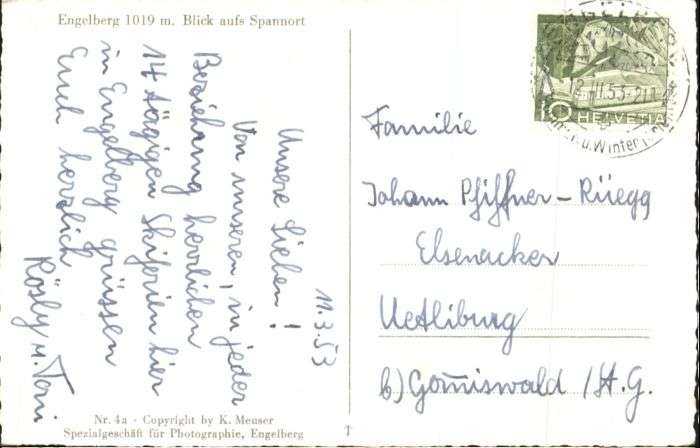 Engelberg 1019 m. Blick aufs Spannort
11.3.53
Unsere Lieben!
Von unseren, in jeder
Beziehung herrlichen
14 tägigen Skiferien hier
in Engelberg grüssen
Euch herzlich
Rösly u. Toni
Nr. 4a - Copyright by K. Meuser
Spezialgeschäft für Photographie, Engelberg
10
HELVETIA
u. Winter
Familie
Johann Pfiffner-Rüegg
Elsenacker
Uetliburg
b) Gom̄iswald /St. G.